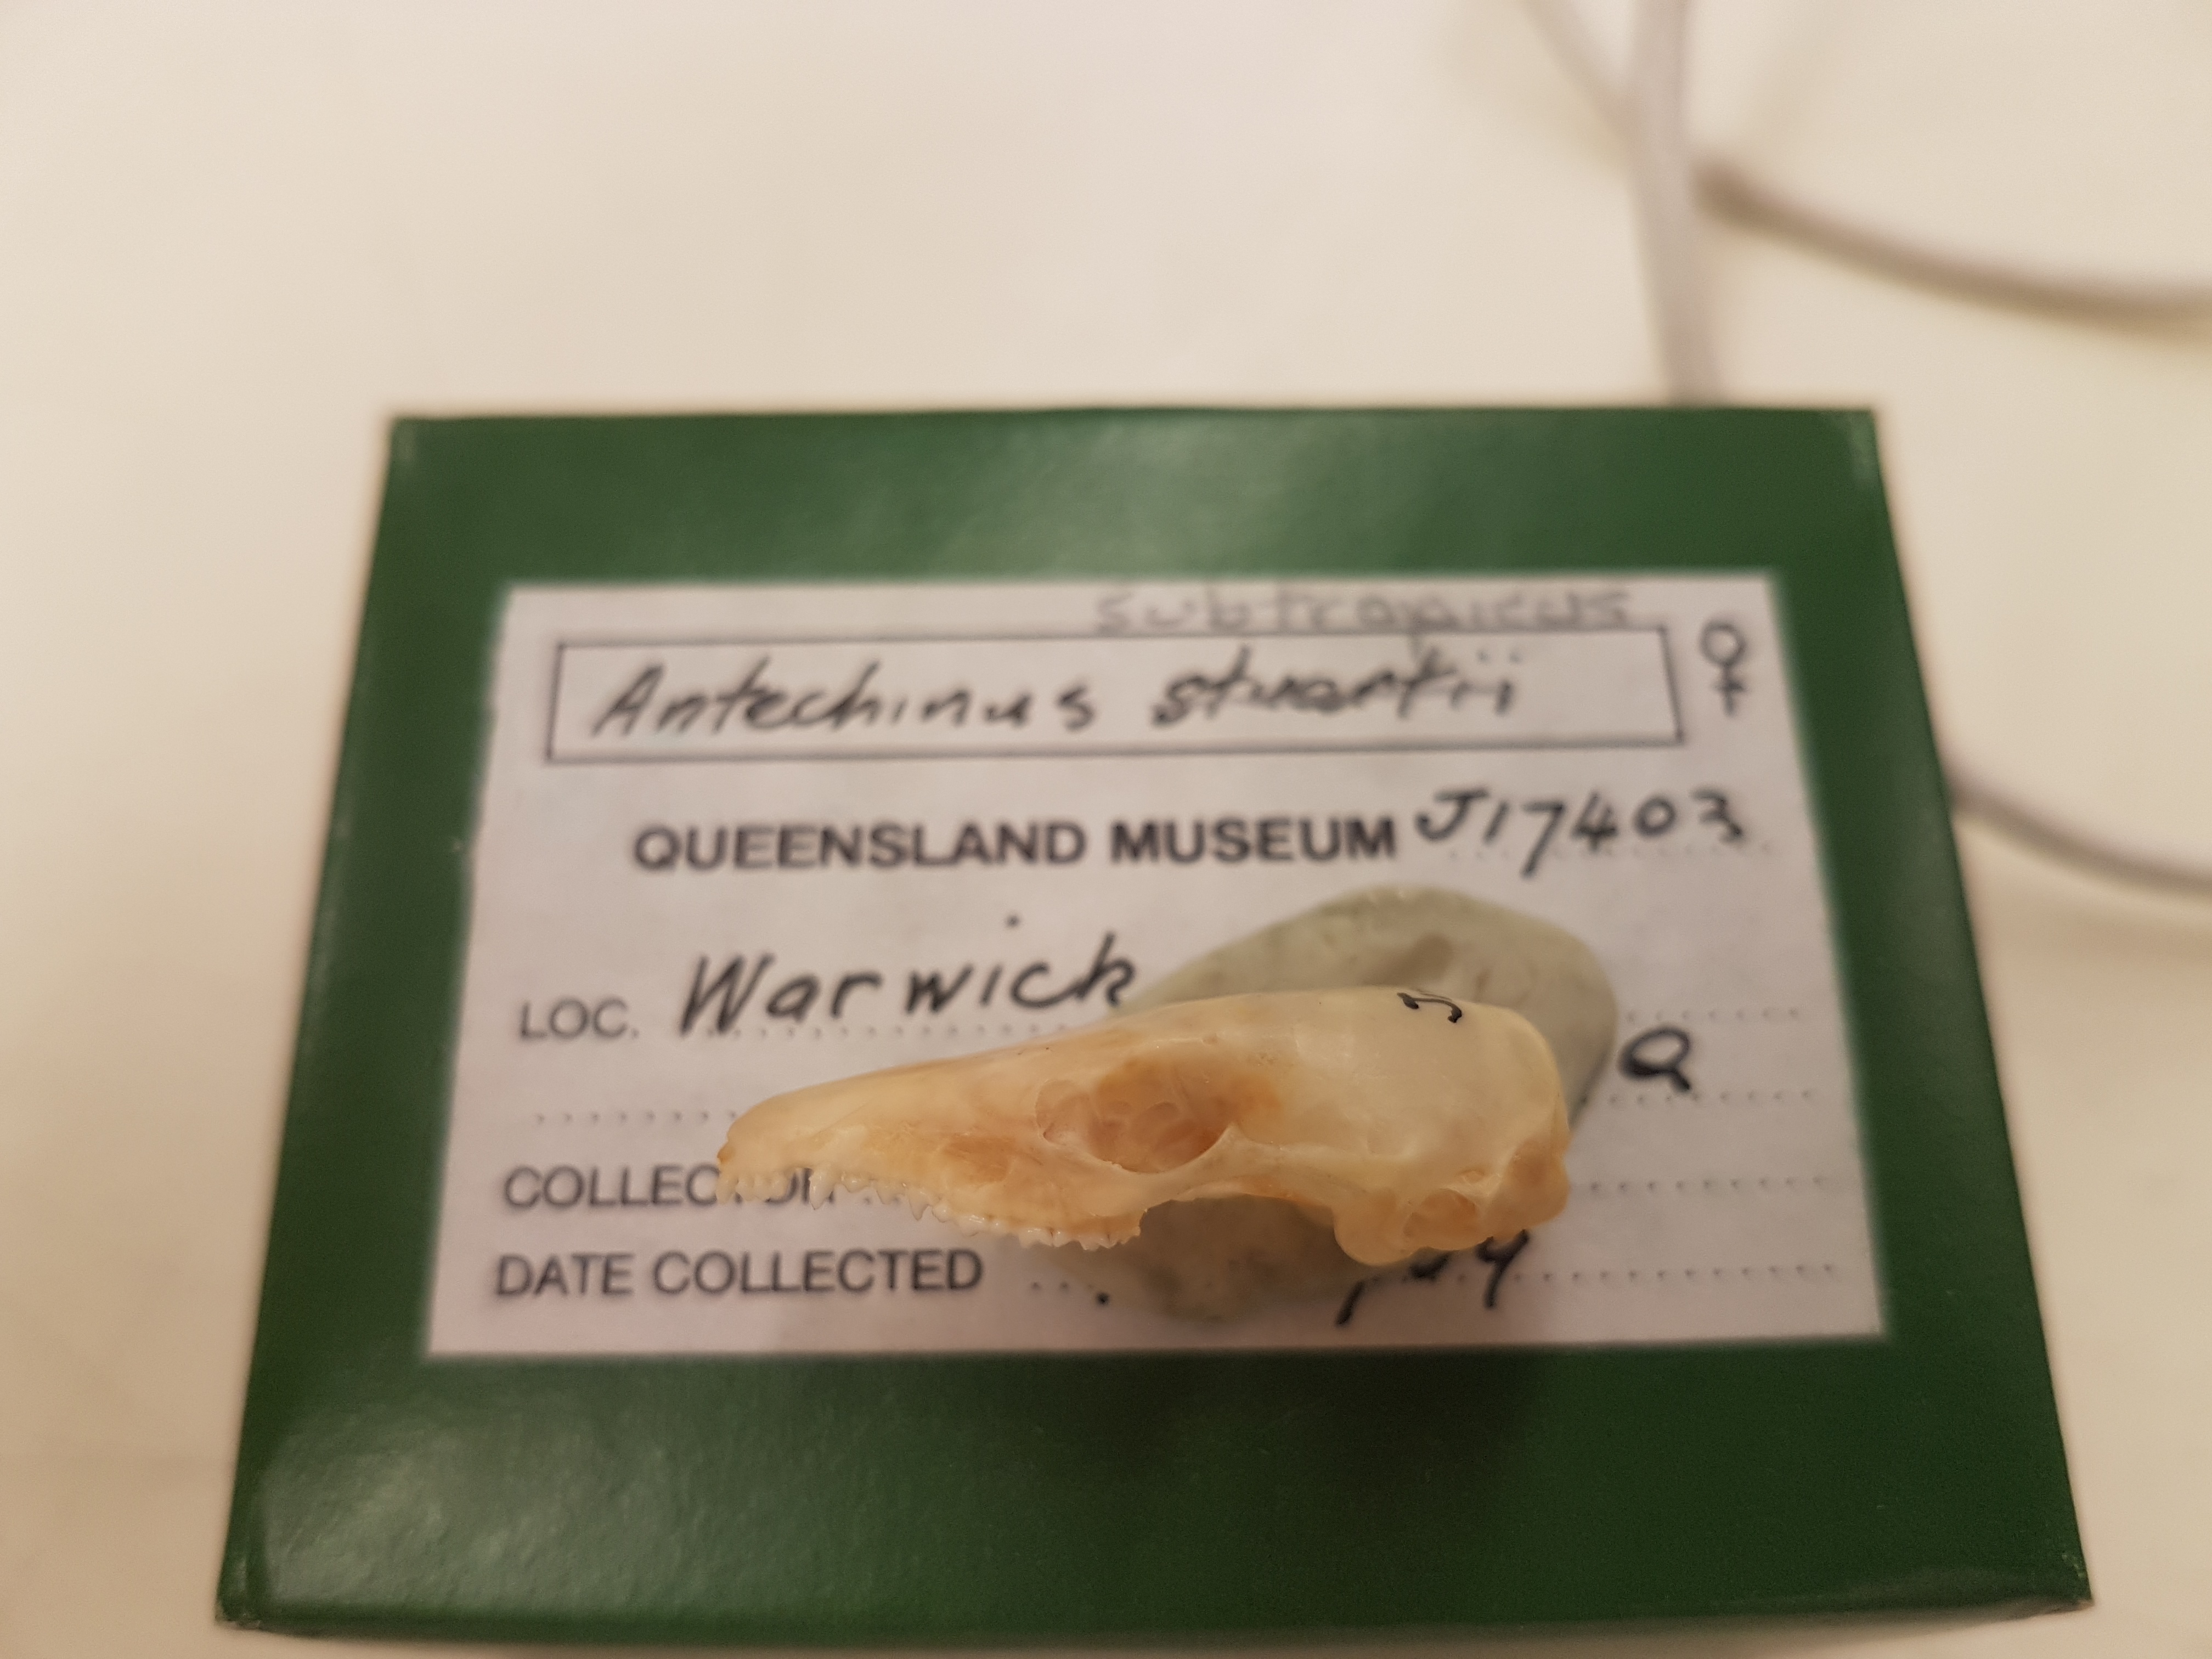 subtropicus
Antechinus stuartii ♀
QUEENSLAND MUSEUM J17403
LOC. Warwick
Q
DATE COLLECTED
J